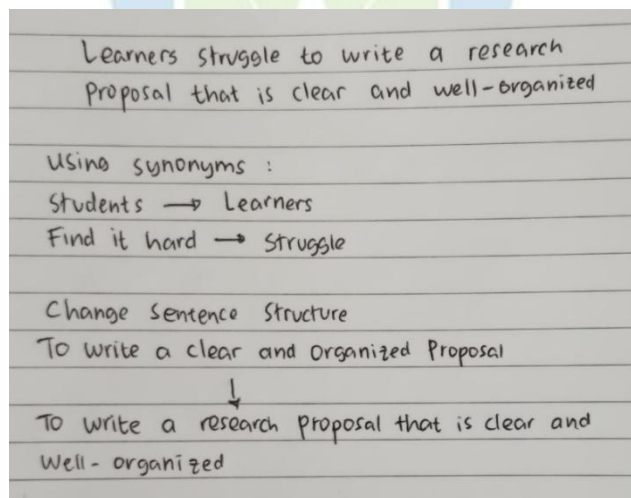 Learners struggle to write a research
proposal that is clear and well-organized
Using synonyms :
Students → Learners
Find it hard → Struggle
Change Sentence Structure
To write a clear and organized Proposal
↓
To write a research proposal that is clear and
well-organized